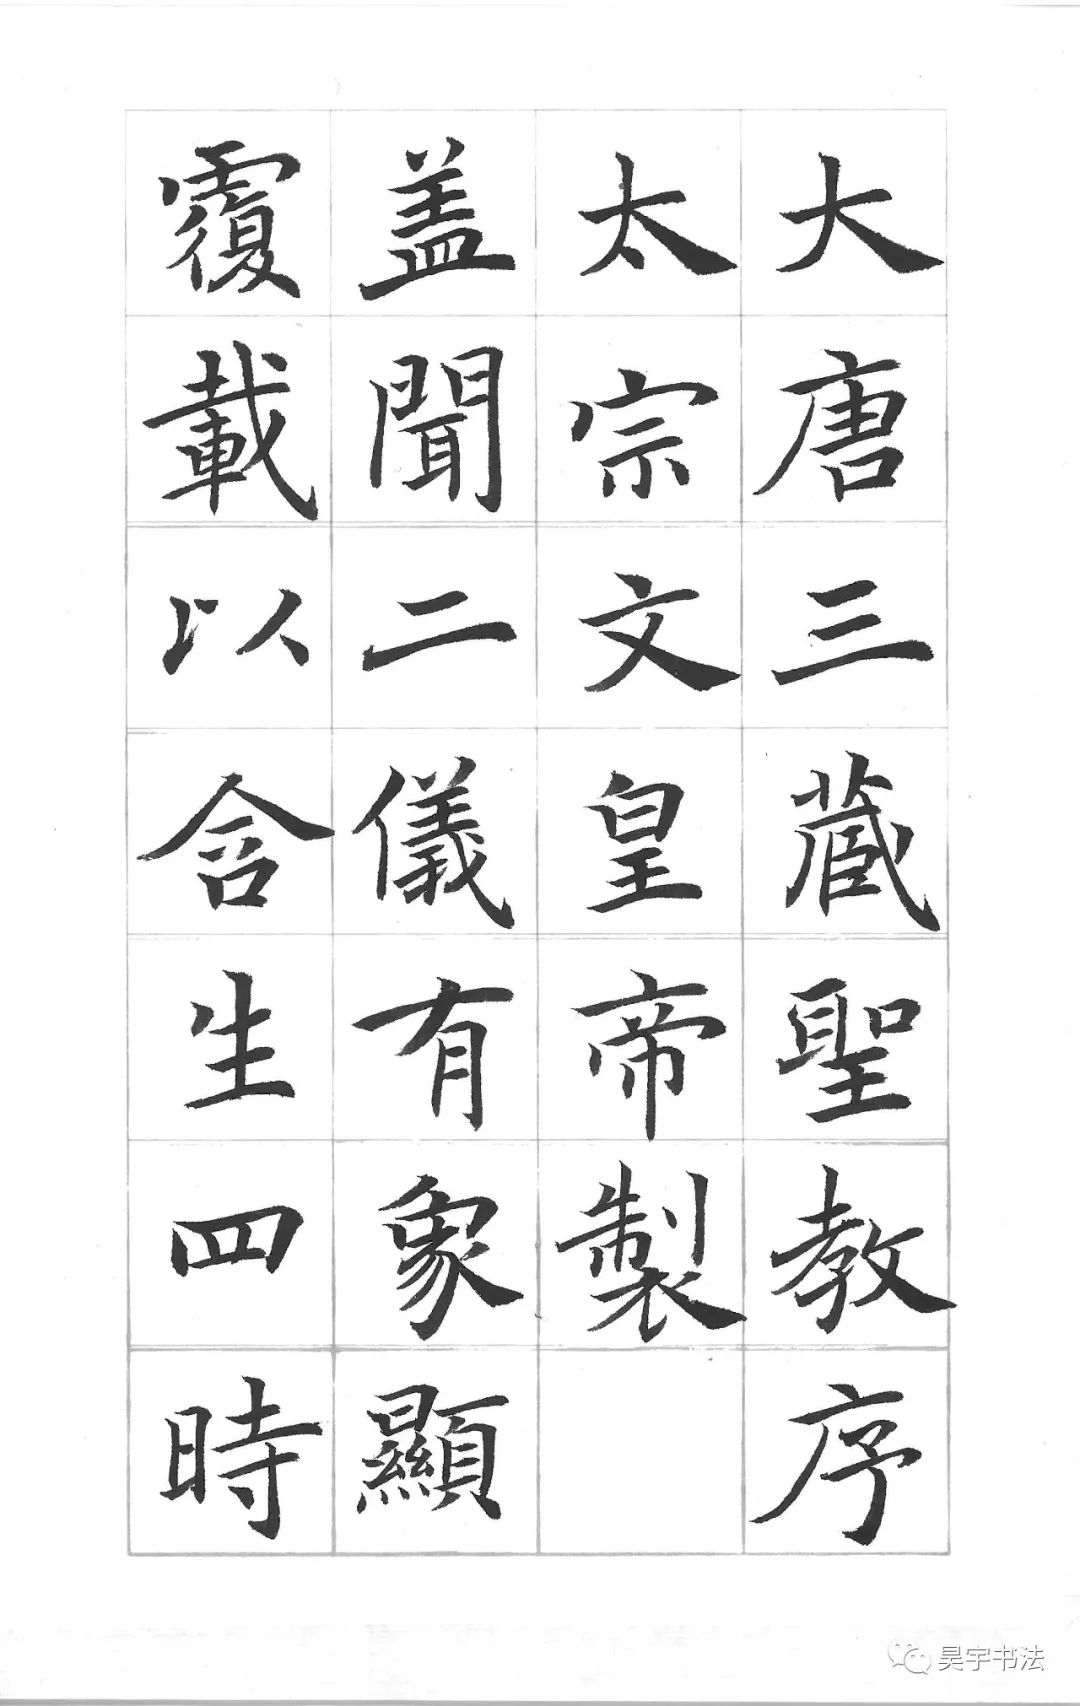 大唐三藏聖教序
太宗文皇帝製
盖聞二儀有象顯
覆載以含生四時
昊宇书法